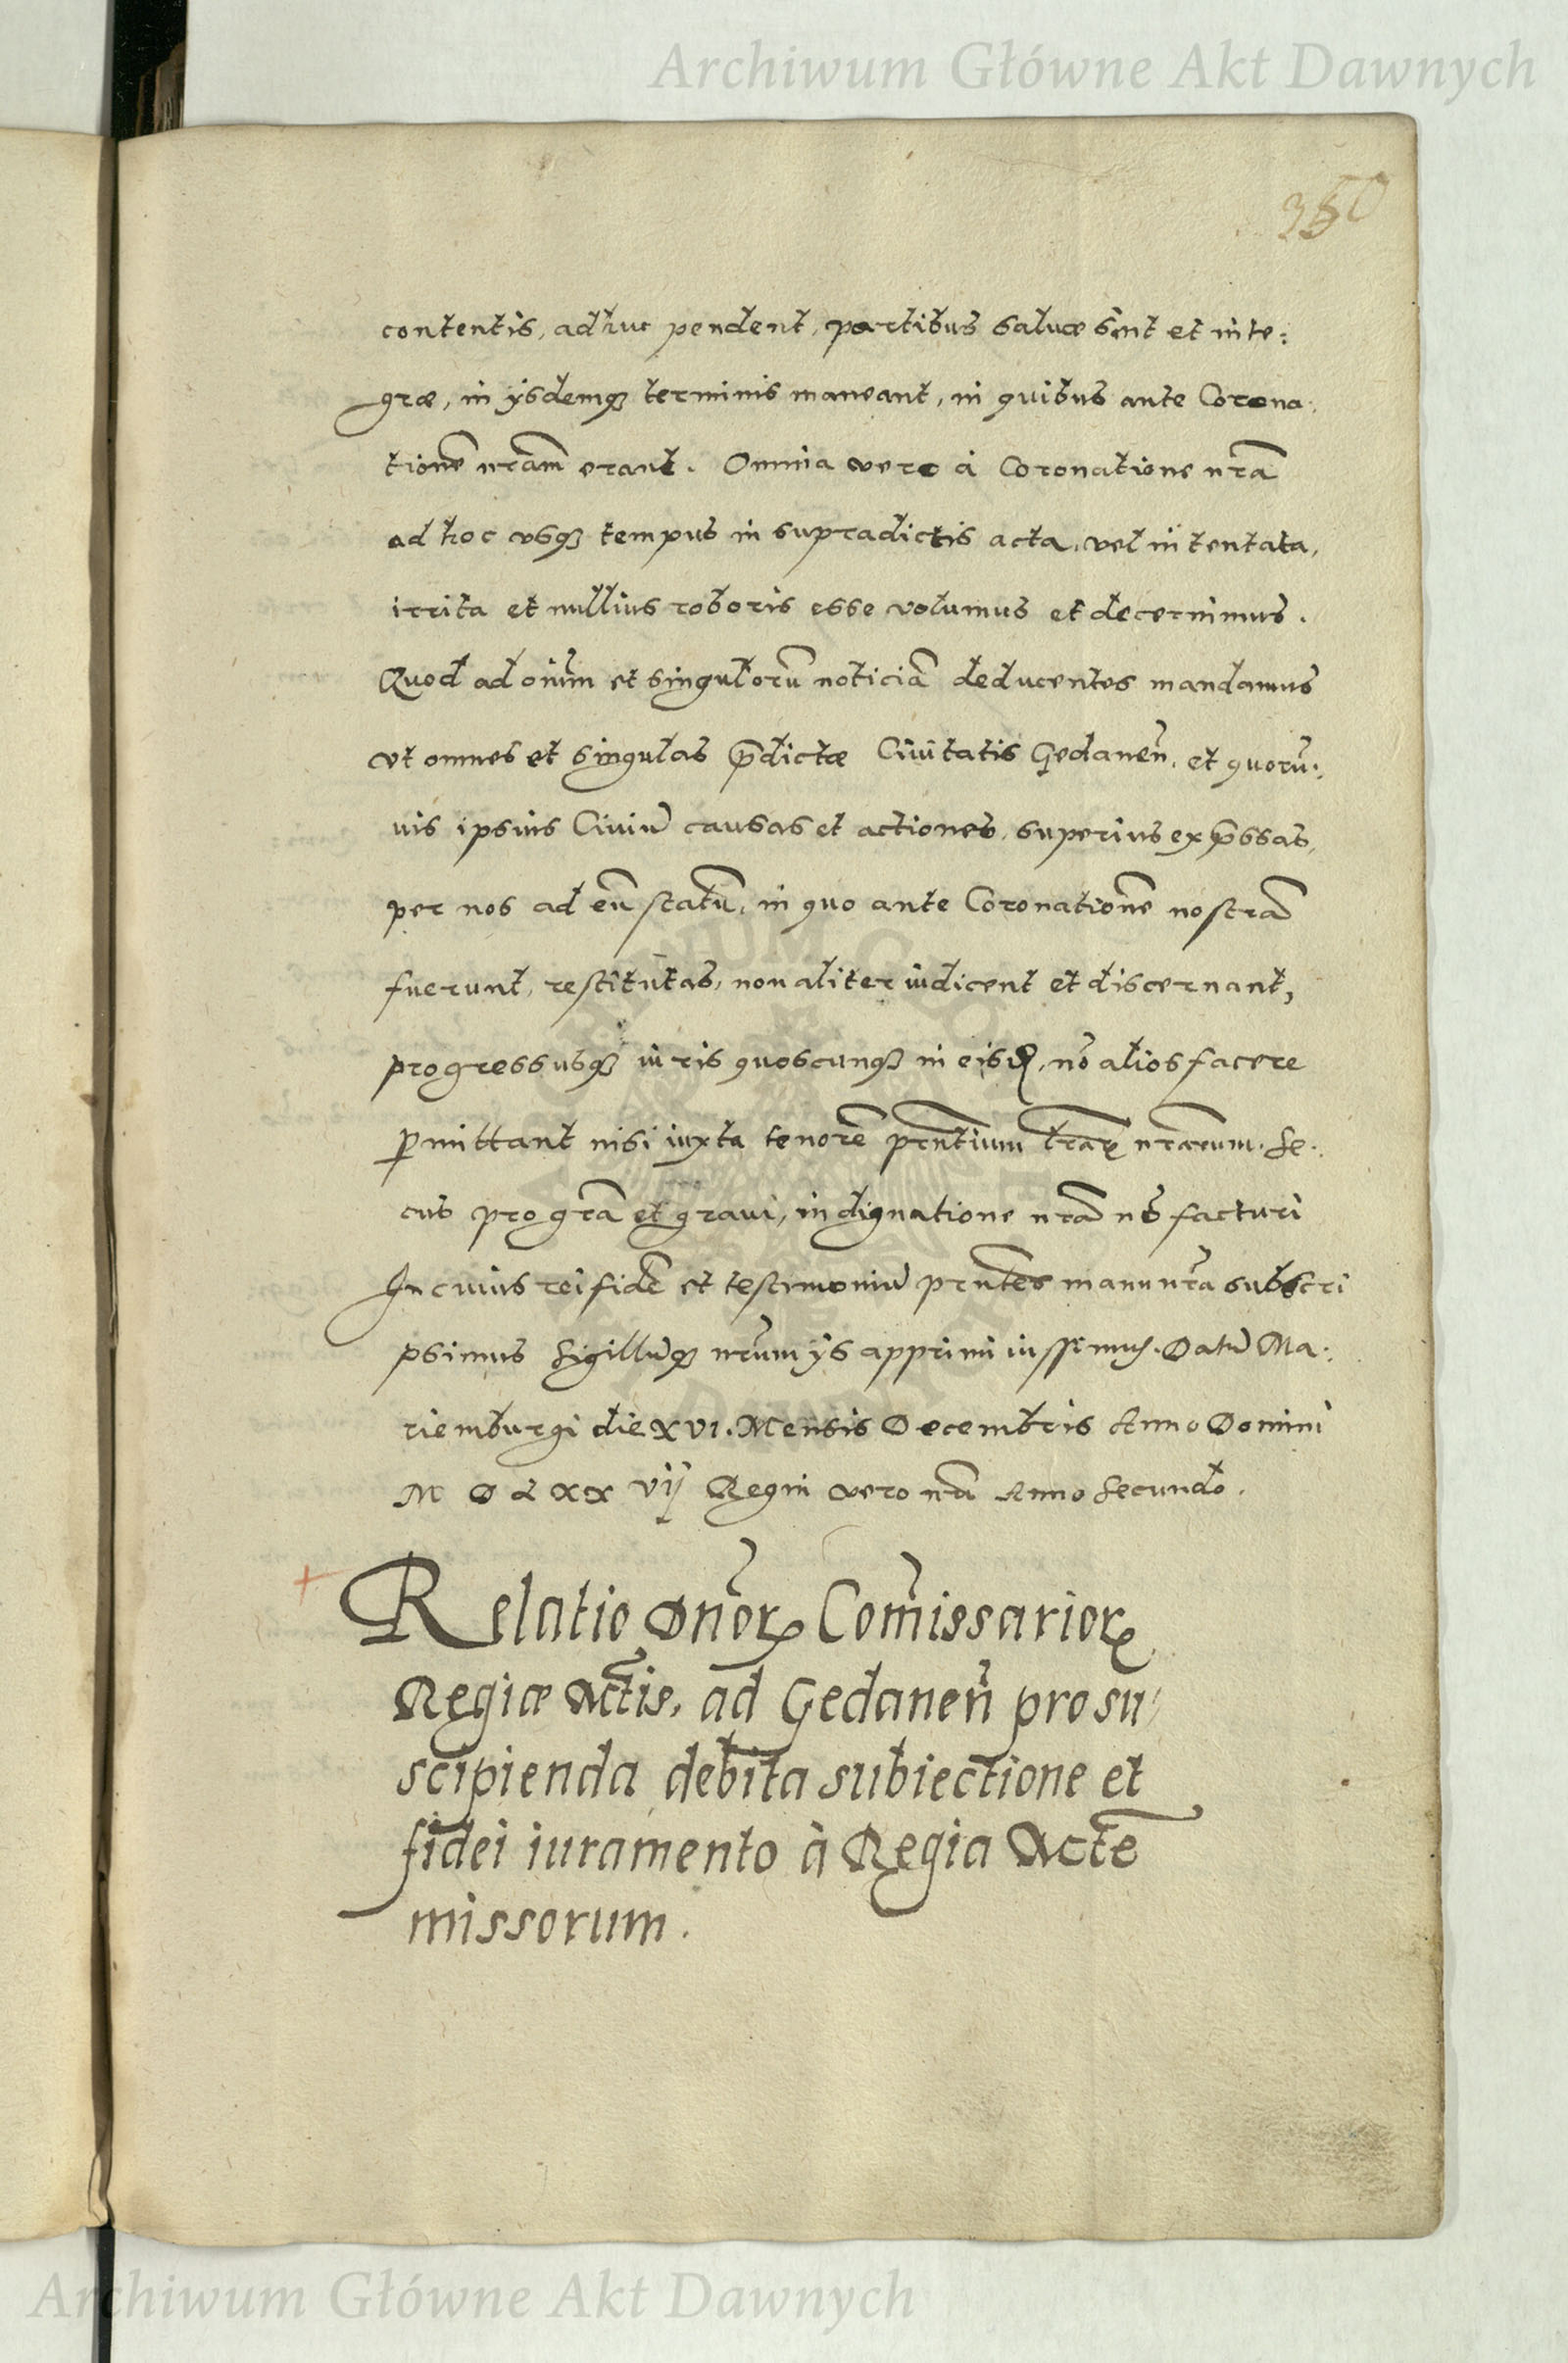 Archiwum Główne Akt Dawnych
350
contentis, adhuc pendent, partibus saluæ sint et inte:
græ, in ysdemq₃ terminis maneant, in quibus ante Corona:
tionē nrām erant. Omnia vero à Coronatione nrā
ad hoc vsq₃ tempus in supradictis acta, vel intentata,
irrita et nullius roboris esse volumus et decernimus.
Quod ad oīum et singulorū noticiā deducentes mandamus
vt omnes et singulas p̄dictæ Ciuitatis Gedaneñ, et quorū:
uis ipsius Ciuiū causas et actiones, superius exp̄ssas,
per nos ad eū statū, in quo ante Coronationē nostrā
fuerunt, restitutas, non aliter iudicent et discernant,
progressusq₃ iuris quoscunq₃ in eisd, nō alios facere
ꝑmittant nisi iuxta tenorē pr̄ntium lr̄aꝝ nr̄arum. Se:
cus pro gr̄a et graui, indignatione nr̄a nō facturi
In cuius rei fidē et testimoniū pr̄ntes manu nr̄a subscri
psimus Sigillūq₃ nr̄um ys apprimi iussimus. Datū Ma:
riemburgi die XVI. Mensis Decembris Anno Domini
M D L XX VII Regni vero nr̄i Anno Secundo.
Relatio Dn̄oꝝ Com̄issarioꝝ
Regiæ Mtis, ad Gedaneñ pro su
scipienda debita subiectione et
fidei iuramento à Regia Mte
missorum.
Archiwum Główne Akt Dawnych